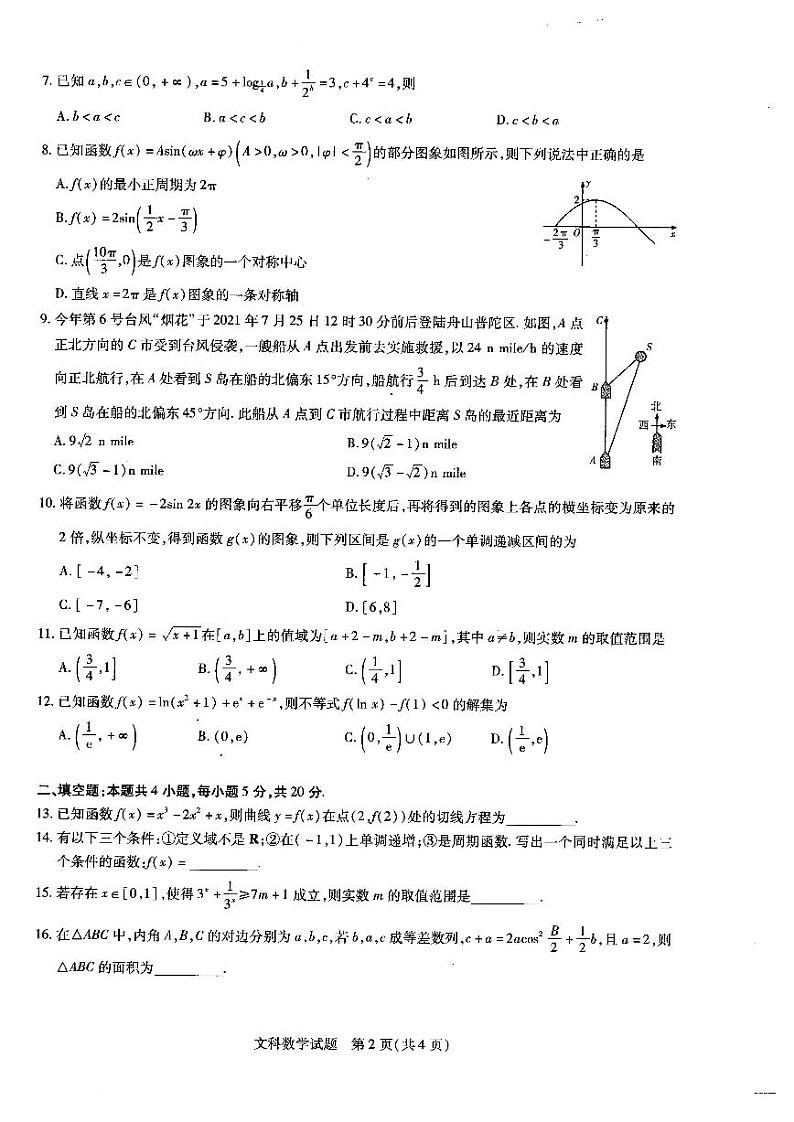 7. 已知 a,b,c∈(0,+∞),a=5+log_{1/4}a,b+1/2^b=3,c+4^c=4,则
A. b<a<c B. a<c<b C. c<a<b D. c<b<a
8. 已知函数 f(x)=Asin(ωx+φ)(A>0,ω>0,|φ|<π/2)的部分图象如图所示,则下列说法中正确的是
A. f(x)的最小正周期为2π
B. f(x)=2sin(1/2x-π/3)
C. 点(10π/3,0)是f(x)图象的一个对称中心
D. 直线x=2π是f(x)图象的一条对称轴
y
2
-2π/3 O π/3 x
9. 今年第6号台风“烟花”于2021年7月25日12时30分前后登陆舟山普陀区. 如图,A点
正北方向的C市受到台风侵袭,一艘船从A点出发前去实施救援,以24 n mile/h的速度
向正北航行,在A处看到S岛在船的北偏东15°方向,船航行3/4 h后到达B处,在B处看
到S岛在船的北偏东45°方向. 此船从A点到C市航行过程中距离S岛的最近距离为
A. 9√2 n mile B. 9(√2-1)n mile
C. 9(√3-1)n mile D. 9(√3-√2)n mile
C
S
B
北
西 东
南
A
10. 将函数f(x)=-2sin 2x的图象向右平移π/6个单位长度后,再将得到的图象上各点的横坐标变为原来的
2倍,纵坐标不变,得到函数g(x)的图象,则下列区间是g(x)的一个单调递减区间的为
A. [-4,-2] B. [-1,-1/2]
C. [-7,-6] D. [6,8]
11. 已知函数f(x)=√(x+1)在[a,b]上的值域为[a+2-m,b+2-m],其中a≠b,则实数m的取值范围是
A. (3/4,1] B. (3/4,+∞) C. (1/4,1] D. [3/4,1]
12. 已知函数f(x)=ln(x²+1)+e^x+e^{-x},则不等式f(ln x)-f(1)<0的解集为
A. (1/e,+∞) B. (0,e) C. (0,1/e)∪(1,e) D. (1/e,e)
二、填空题:本题共4小题,每小题5分,共20分.
13. 已知函数f(x)=x³-2x²+x,则曲线y=f(x)在点(2,f(2))处的切线方程为________.
14. 有以下三个条件:①定义域不是R;②在(-1,1)上单调递增;③是周期函数. 写出一个同时满足以上三
个条件的函数:f(x)=________.
15. 若存在x∈[0,1],使得3^x+1/3^x≥7m+1成立,则实数m的取值范围是________.
16. 在△ABC中,内角A,B,C的对边分别为a,b,c,若b,a,c成等差数列,c+a=2acos²B/2+1/2b,且a=2,则
△ABC的面积为________.
文科数学试题 第2页(共4页)